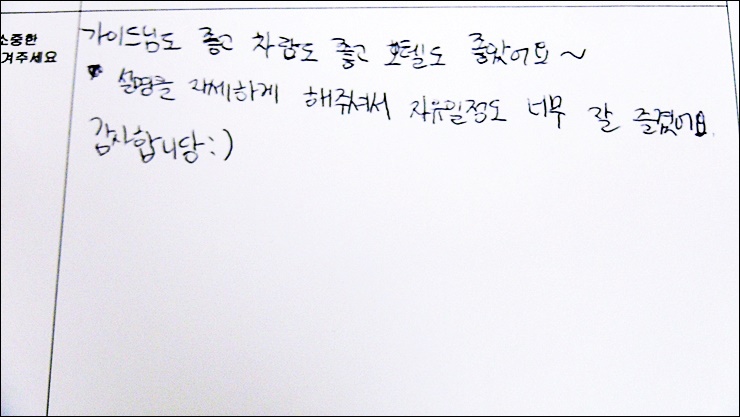 소중한
겨주세요
가이드님도 좋고 차량도 좋고 호텔도 좋았어요~
설명을 자세하게 해주셔서 자유일정도 너무 잘 즐겼어요.
감사합니당:)